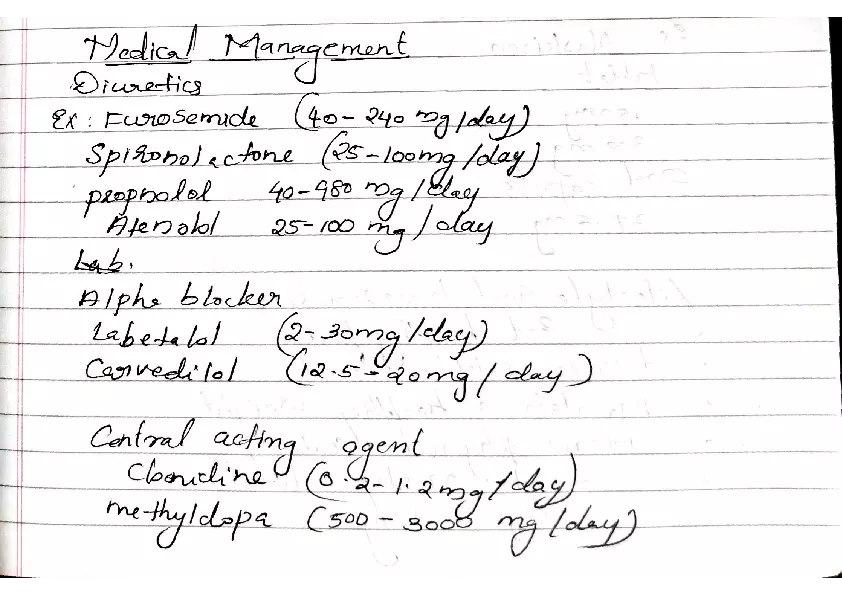 Medical Management
Diuretics
Ex: Furosemide (40-240 mg/day)
Spironolactone (25-100mg/day)
propnolol 40-480 mg/day
Atenolol 25-100 mg/day
Lab.
Alpha blocker
Labetalol (2-30mg/day)
Carvedilol (12.5-20mg/day)
Central acting agent
Clonidine (0.2-1.2mg/day)
methyldopa (500-3000 mg/day)